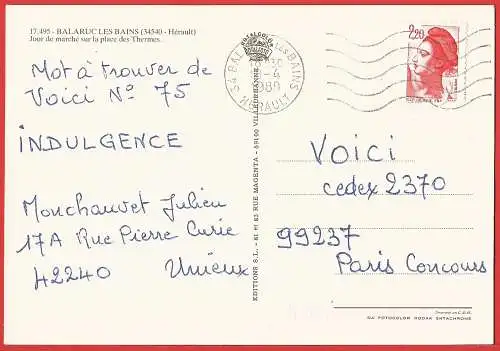 17.495 - BALARUC LES BAINS (34540 - Hérault)
Jour de marché sur la place des Thermes.
Mot à trouver de
Voici N° 75
INDULGENCE
Monchauvet Julien
17A Rue Pierre Curie
42240 Unieux
EDITIONS S.L. - 61 H 63 RUE MAGENTA - 69100 VILLEURBANNE
34 BALARUC LES BAINS
HERAULT
2,20
VOICI
cedex 2370
99237
Paris Concours
FOTOCOLOR KODAK EKTACHROME